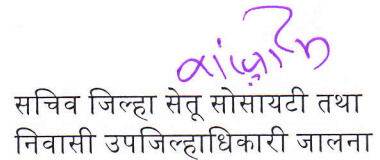 सचिव जिल्हा सेतू सोसायटी तथा
निवासी उपजिल्हाधिकारी जालना